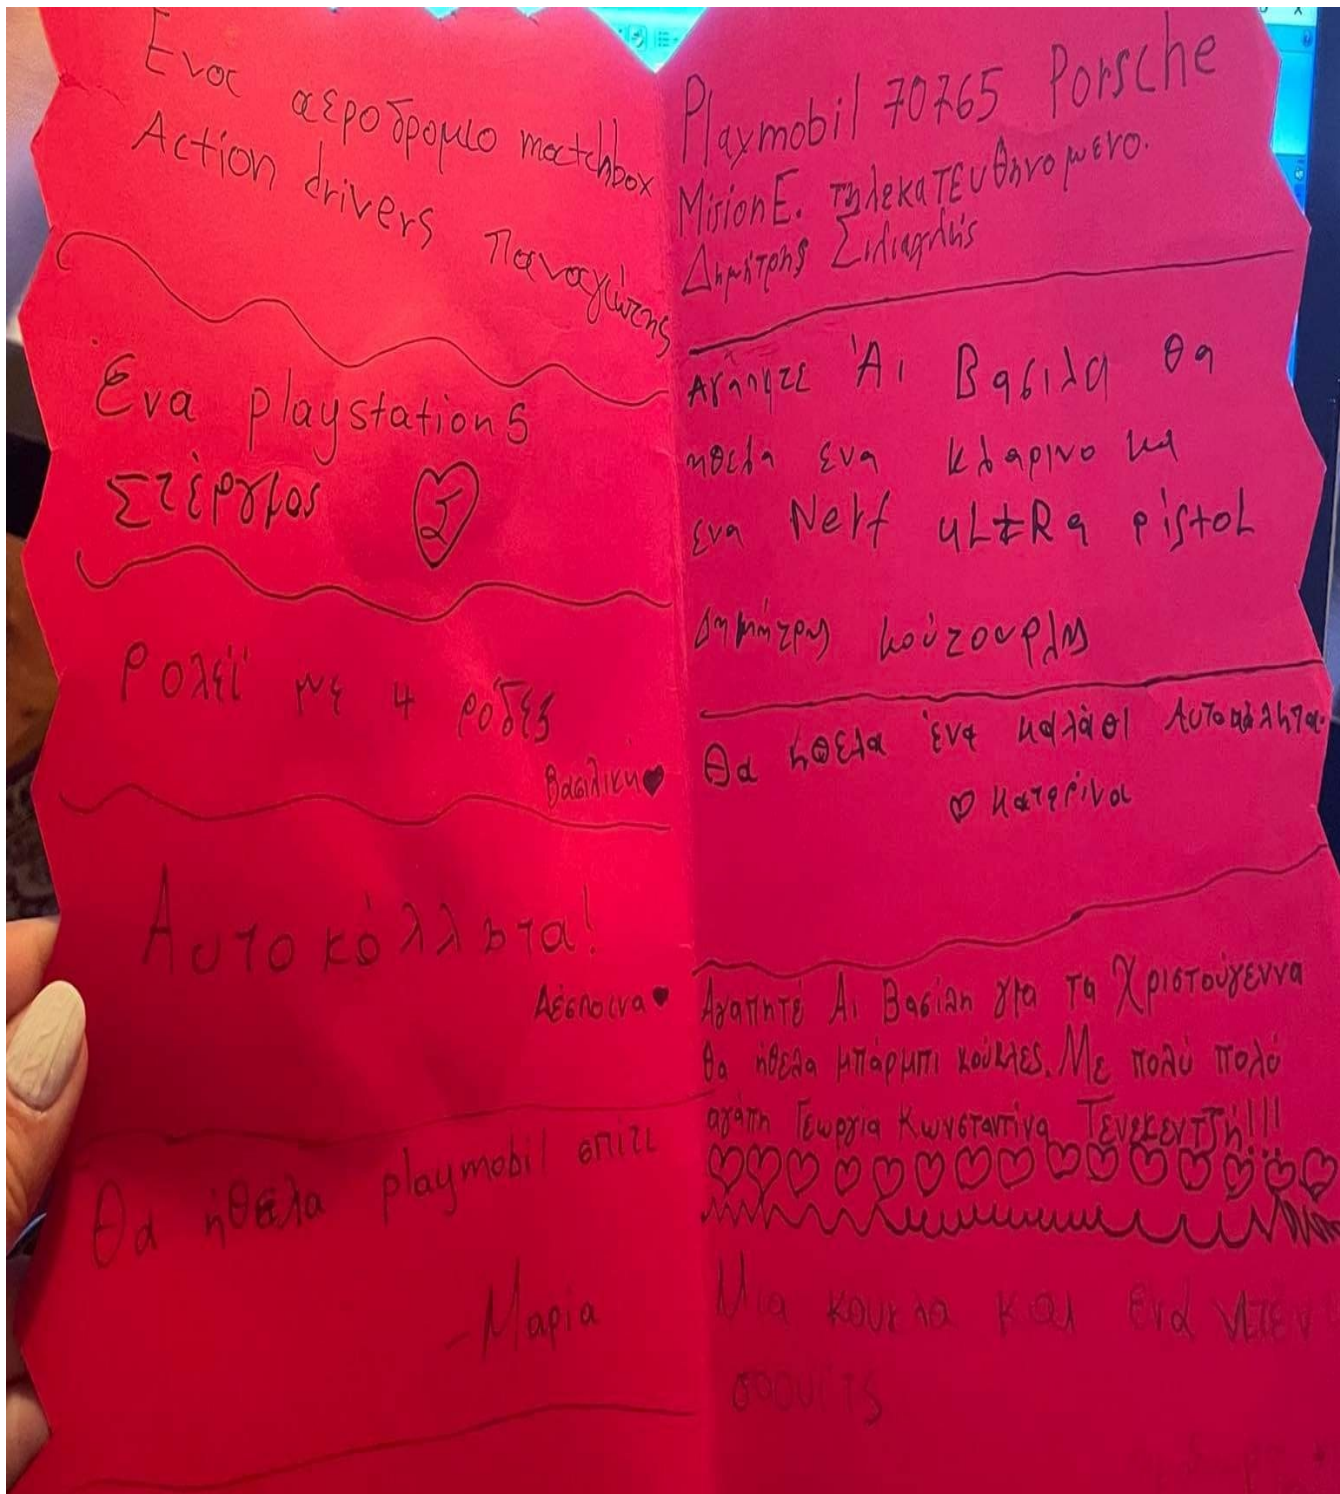 Ενα αεροδρομιο matchbox
Action drivers Παναγιώτης
Ενα playstation 5
Στέργιος Σ
Ρολέϊ με 4 ρόδες
Βασιλική
Αυτοκόλλητα!
Δέσποινα
Θα ήθελα playmobil σπίτι
-Μαρία
Playmobil 70765 Porsche
Mision E. τηλεκατευθηνομενο.
Δημήτρης
Αγαπητε Άι Βασιλα θα
ηθελα ενα κλαρινο κα
ενα Nerf uLtRa pistoL
Δημήτρης κούτουρλης
Θα ήθελα ένα καλάθι Αυτοκόλητα.
Κατερίνα
Αγαπητέ Αι Βασίλη για τα Χριστούγεννα
θα ήθελα μπάρμπι κούκλες. Με πολύ πολύ
αγάπη Γεωργία Κωνσταντίνα Τενεκεντζή!!!
Μια κουκλα και ενα